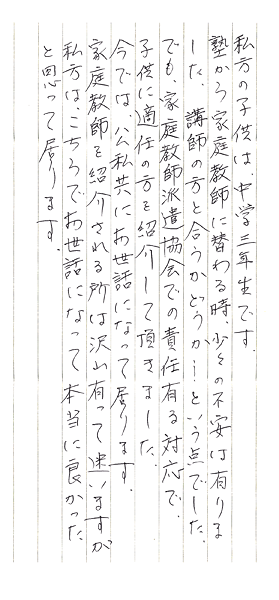 私方の子供は、中学三年生です
塾から家庭教師に替わる時、少々の不安は有りま
した。講師の方と合うかどうか…という点でした。
でも、家庭教師派遣協会での責任有る対応で、
子供に適任の方を紹介して頂きました。
今では、公私共にお世話になって居ります。
家庭教師を紹介される所は沢山有って迷いますが
私方は、こちらでお世話になって本当に良かった
と思って居ります。